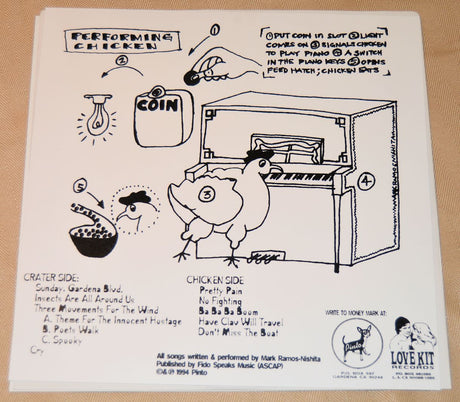 PERFORMING
CHICKEN
①
① PUT COIN IN SLOT ② LIGHT
COMES ON ③ SIGNALS CHICKEN
TO PLAY PIANO ④ A SWITCH
IN THE PIANO KEYS ⑤ OPENS
FEED HATCH; CHICKEN EATS
②
COIN
③
④
⑤
CRATER SIDE:
Sunday, Gardena Blvd.
Insects Are All Around Us
Three Movements For The Wind
A. Theme For The Innocent Hostage
B. Poets Walk
C. Spooky
Cry
CHICKEN SIDE
Pretty Pain
No Fighting
Ba Ba Ba Boom
Have Clav Will Travel
Don't Miss The Boat
WRITE TO MONEY MARK AT:
Pinto
GARDENA CA 90248
LOVE KIT
RECORDS
All songs written & performed by Mark Ramos-Nishita
Published by Fido Speaks Music (ASCAP)
©&℗ 1994 Pinto